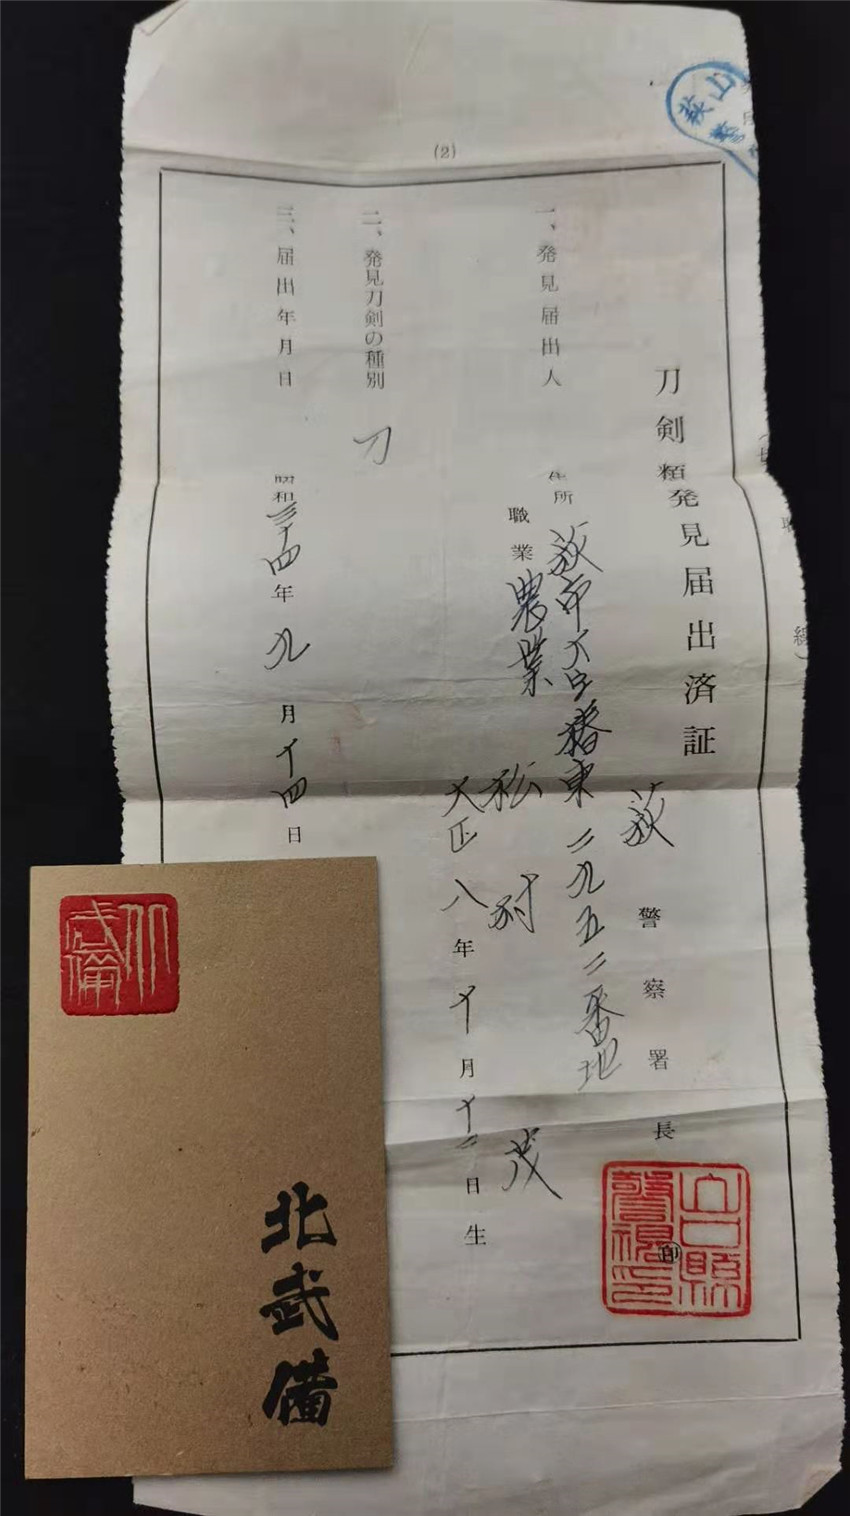 (2)
刀剣類発見届出済証
萩警察署長
㊞
山口縣警視之印
一、発見届出人
住所 萩市大字椿東二九五二番地
職業 農業
松村 茂
大正八年十月十二日生
二、発見刀剣の種別 刀
三、届出年月日 昭和三十四年九月十四日
北武備
北武備